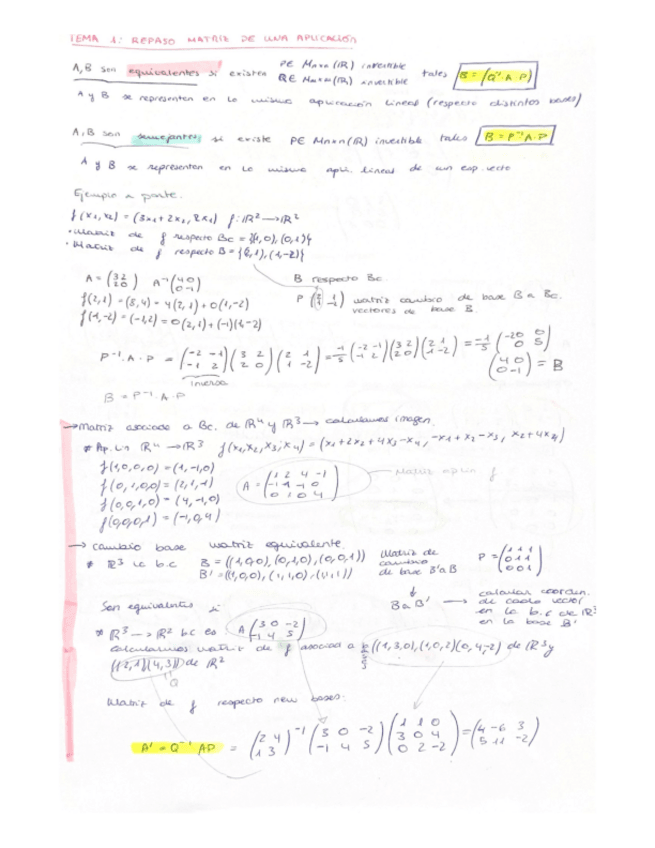 TEMA 1: REPASO MATRIZ DE UNA APLICACIÓN
A, B son equivalentes si existen P∈ Mnxn (ℝ) invertible
Q∈ Mmxm (ℝ) invertible tales B = (Q⁻¹ A P)
A y B se representen en lo misma aplicación lineal (respecto distintos bases)
A, B son semejantes, si existe P∈ Mnxn (ℝ) invertible tales B = P⁻¹ A·P
A y B se representen en lo misma apli. lineal de un esp. vecto
Ejemplo a parte.
f(x1, x2) = (3x1 + 2x2, 2x1) f: ℝ² → ℝ²
· Matriz de f respecto Bc = {(1,0), (0,1)}
· Matriz de f respecto B = {(2,1), (1,-2)}
A = (3 2 / 2 0) A' = (4 0 / 0 -1) B respecto Bc
f(2,1) = (8,4) = 4(2,1) + 0(1,-2) P (2 1 / 1 -2) matriz cambio de base B a Bc.
f(1,-2) = (-1,2) = 0(2,1) + (-1)(1,-2) vectores de base B
P⁻¹·A·P = (-2 -1 / -1 2) (3 2 / 2 0) (2 1 / 1 -2) = -1/5 (-2 -1 / -1 2) (3 2 / 2 0) (2 1 / 1 -2) = -1/5 (-20 0 / 0 5)
inversa (4 0 / 0 -1) = B
B = P⁻¹·A·P
→ Matriz asociada a Bc. de ℝ⁴ y ℝ³ → calculamos imagen.
* Ap. lin ℝ⁴ → ℝ³ f(x1, x2, x3, x4) = (x1 + 2x2 + 4x3 - x4, -x1 + x2 - x3, x2 + 4x4)
f(1,0,0,0) = (1,-1,0)
f(0,1,0,0) = (2,1,1) A = (1 2 4 -1 / -1 1 -1 0 / 0 1 0 4) Matriz aplic. f
f(0,0,1,0) = (4,-1,0)
f(0,0,0,1) = (-1,0,4)
→ Cambio base matriz equivalente.
* ℝ³ b.c B = ((1,0,0), (0,1,0), (0,0,1)) Matriz de cambio de base B' a B P = (1 1 1 / 0 1 1 / 0 0 1)
B' = ((1,0,0), (1,1,0), (1,1,1))
B a B' → calcular coorden. de cada vector en la b.c de ℝ³ en la base B'
Son equivalentes si
* ℝ³ → ℝ² bc es A (3 0 -2 / -1 4 5)
calculamos matriz de f asociad a bases ((1,3,0), (1,0,2) (0,4,-2) de ℝ³ y
((2,1)(4,3)) de ℝ²
Q
Matriz de f respecto new bases:
A' = Q⁻¹ AP = (2 4 / 1 3)⁻¹ (3 0 -2 / -1 4 5) (1 1 0 / 3 0 4 / 0 2 -2) = (4 -6 3 / 5 11 -2)